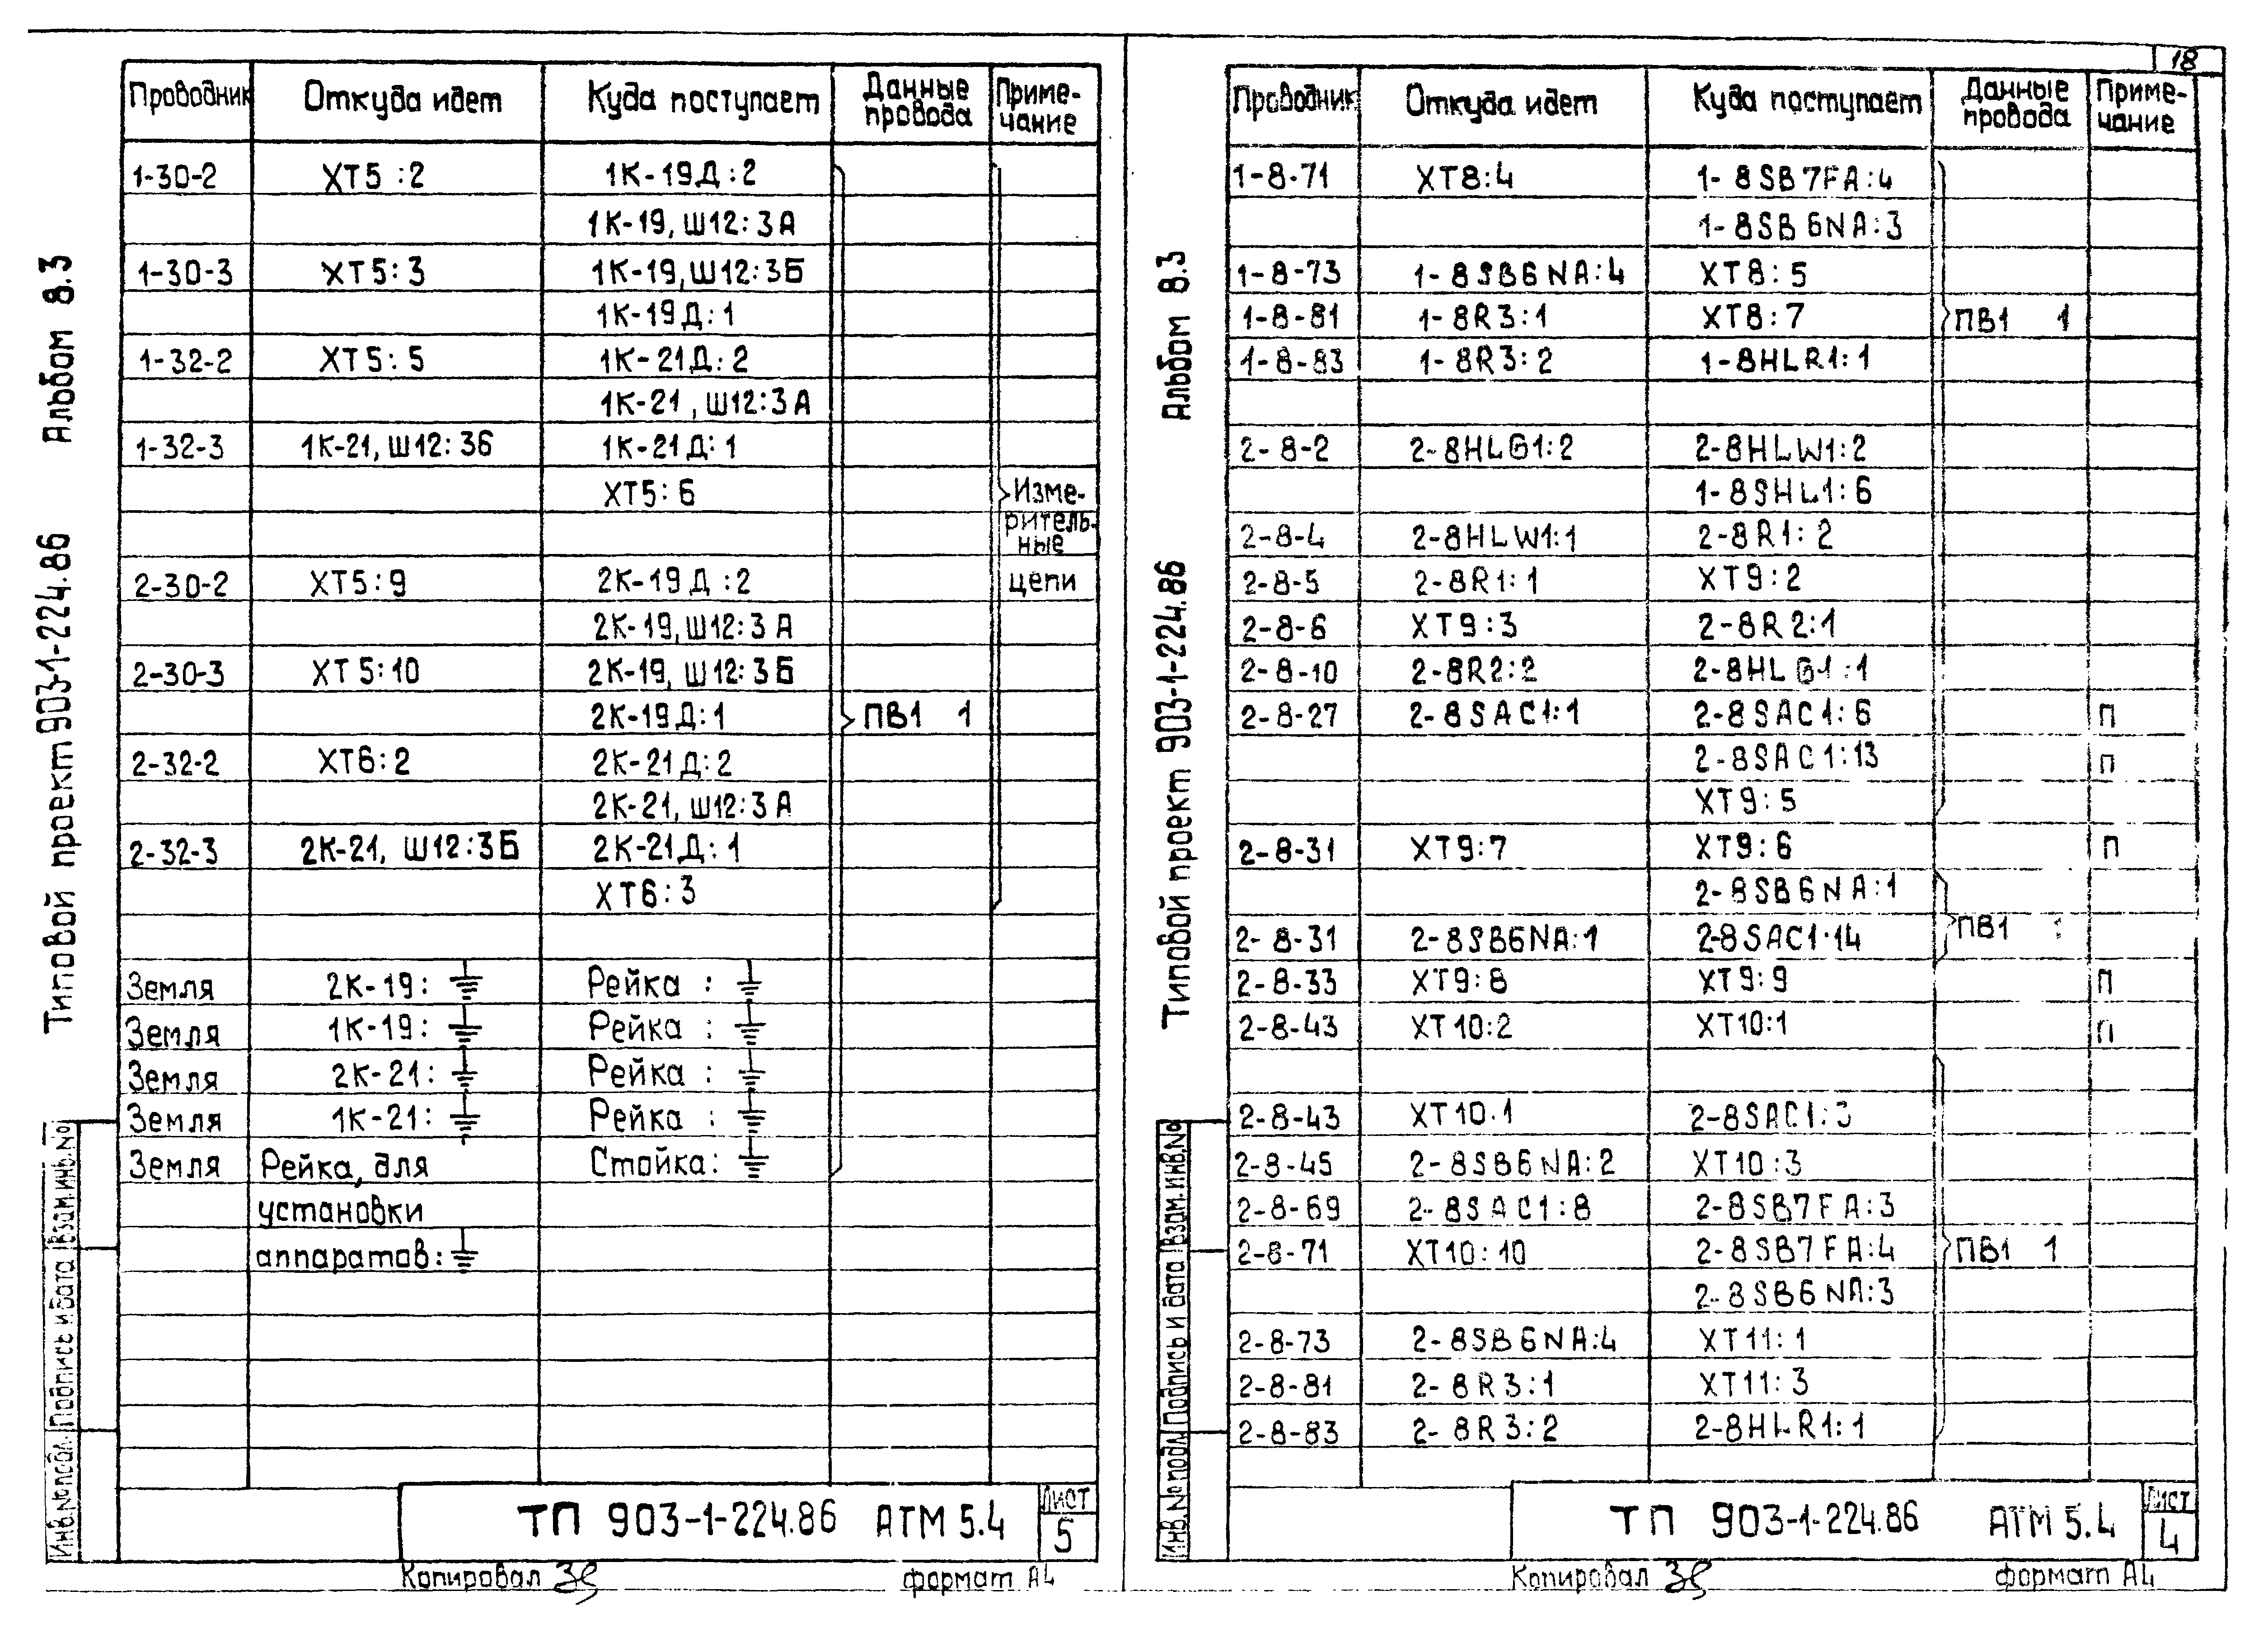 18
Альбом 8.3
Типовой проект 903-1-224.86
Проводник Откуда идет Куда поступает Данные провода Приме-чание
1-30-2 ХТ5:2 1К-19Д:2
1К-19, Ш12:3А
1-30-3 ХТ5:3 1К-19, Ш12:3Б
1К-19Д:1
1-32-2 ХТ5:5 1К-21Д:2
1К-21, Ш12:3А
1-32-3 1К-21, Ш12:3б 1К-21Д:1
ХТ5:6 Изме-
ритель-
ные
2-30-2 ХТ5:9 2К-19Д:2 цепи
2К-19, Ш12:3А
2-30-3 ХТ5:10 2К-19, Ш12:3Б
2К-19Д:1 ПВ1 1
2-32-2 ХТ6:2 2К-21Д:2
2К-21, Ш12:3А
2-32-3 2К-21, Ш12:3Б 2К-21Д:1
ХТ6:3
Земля 2К-19: ⏚ Рейка : ⏚
Земля 1К-19: ⏚ Рейка : ⏚
Земля 2К-21: ⏚ Рейка : ⏚
Земля 1К-21: ⏚ Рейка : ⏚
Земля Рейка, для Стойка: ⏚
установки
аппаратов: ⏚
Инв.№подл. Подпись и дата Взам.инв.№
ТП 903-1-224.86 АТМ 5.4 Лист 5
Копировал формат А4
Альбом 8.3
Типовой проект 903-1-224.86
Проводник Откуда идет Куда поступает Данные провода Приме-чание
1-8-71 ХТ8:4 1-8SB7FA:4
1-8SB6NA:3
1-8-73 1-8SB6NA:4 ХТ8:5
1-8-81 1-8R3:1 ХТ8:7 ПВ1 1
1-8-83 1-8R3:2 1-8HLR1:1
2-8-2 2-8HLG1:2 2-8HLW1:2
1-8SHL1:6
2-8-4 2-8HLW1:1 2-8R1:2
2-8-5 2-8R1:1 ХТ9:2
2-8-6 ХТ9:3 2-8R2:1
2-8-10 2-8R2:2 2-8HLG1:1
2-8-27 2-8SAC1:1 2-8SAC1:6 П
2-8SAC1:13 П
ХТ9:5
2-8-31 ХТ9:7 ХТ9:6 П
2-8SB6NA:1
2-8-31 2-8SB6NA:1 2-8SAC1·14 ПВ1
2-8-33 ХТ9:8 ХТ9:9 П
2-8-43 ХТ10:2 ХТ10:1 П
2-8-43 ХТ10.1 2-8SAC1:3
2-8-45 2-8SB6NA:2 ХТ10:3
2-8-69 2-8SAC1:8 2-8SB7FA:3
2-8-71 ХТ10:10 2-8SB7FA:4 ПВ1 1
2-8SB6NA:3
2-8-73 2-8SB6NA:4 ХТ11:1
2-8-81 2-8R3:1 ХТ11:3
2-8-83 2-8R3:2 2-8HLR1:1
Инв.№подл. Подпись и дата Взам.инв.№
ТП 903-1-224.86 АТМ 5.4 Лист 4
Копировал формат А4